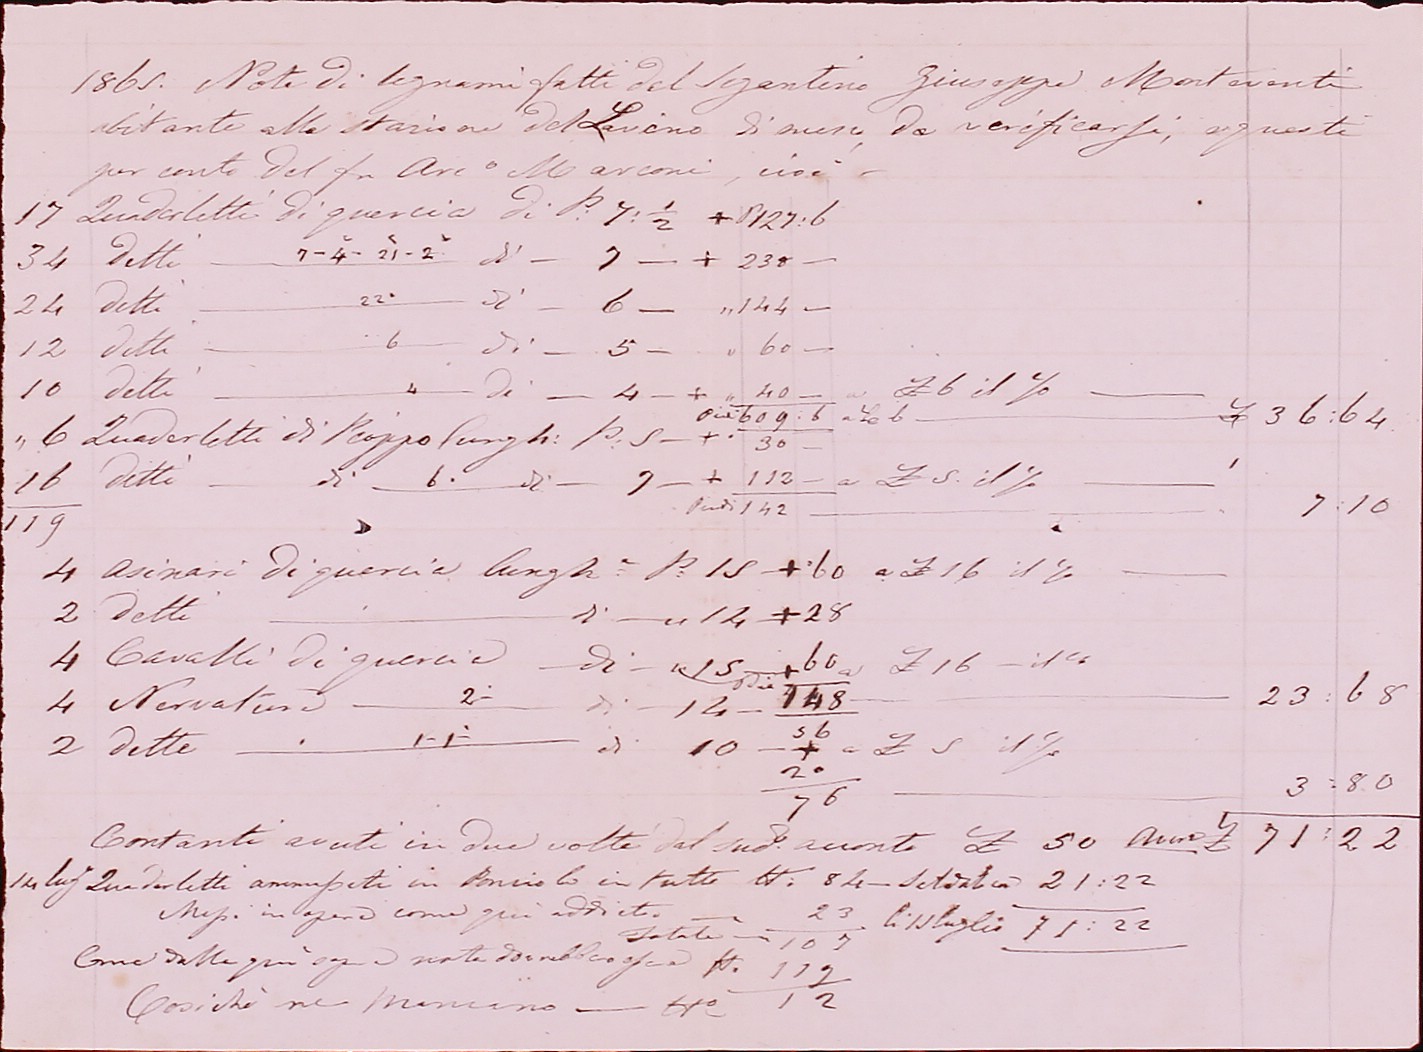 1865. Nota di legnami fatti dal Segantino Giuseppe Monteventi
abitante alla stazione del Lavino di mezzo da verificarsi, e questi
per conto del Arc° Marconi, cioè
17 Quaderletti di quercia di P. 7:½ + 127:6
34 detti 7-4-21-2 di - 7 - + 238 -
24 detti 22 di - 6 - „ 144 -
12 detti 6 di - 5 - „ 60 -
10 detti 4 di - 4 - + „ 40 - a £ 6 il %
609:6 a £ 6 £ 36:64
„ 6 Quaderletti di Pioppo lungh: P. 5 - + 30 -
16 detti di 6. di - 7 - + 112 - a £ 5. il %
119 Piedi 142 7:10
4 asinari di quercia lungh: P. 15 + 60 a £ 16 il %
2 detti di - „ 14 + 28
4 Cavalli di quercia di - „ 15 + 60 a £ 16 - il %
4 Nervature 2 di - 14 - 148 23:68
2 dette 1-1- di 10 - 56 + a £ 5 il %
20
76 3:80
Contanti avuti in due volte dal sud. acconto £ 50 £ 71:22
14 lug Quaderletti in tutto N. 84 - Saldati 21:22
Messi in opera come qui addietro 23 li 15 luglio 71:22
Totale - 107
Come dalla qui sopra nota dovrebbero N. 119
Cosichè ne mancano - N° 12